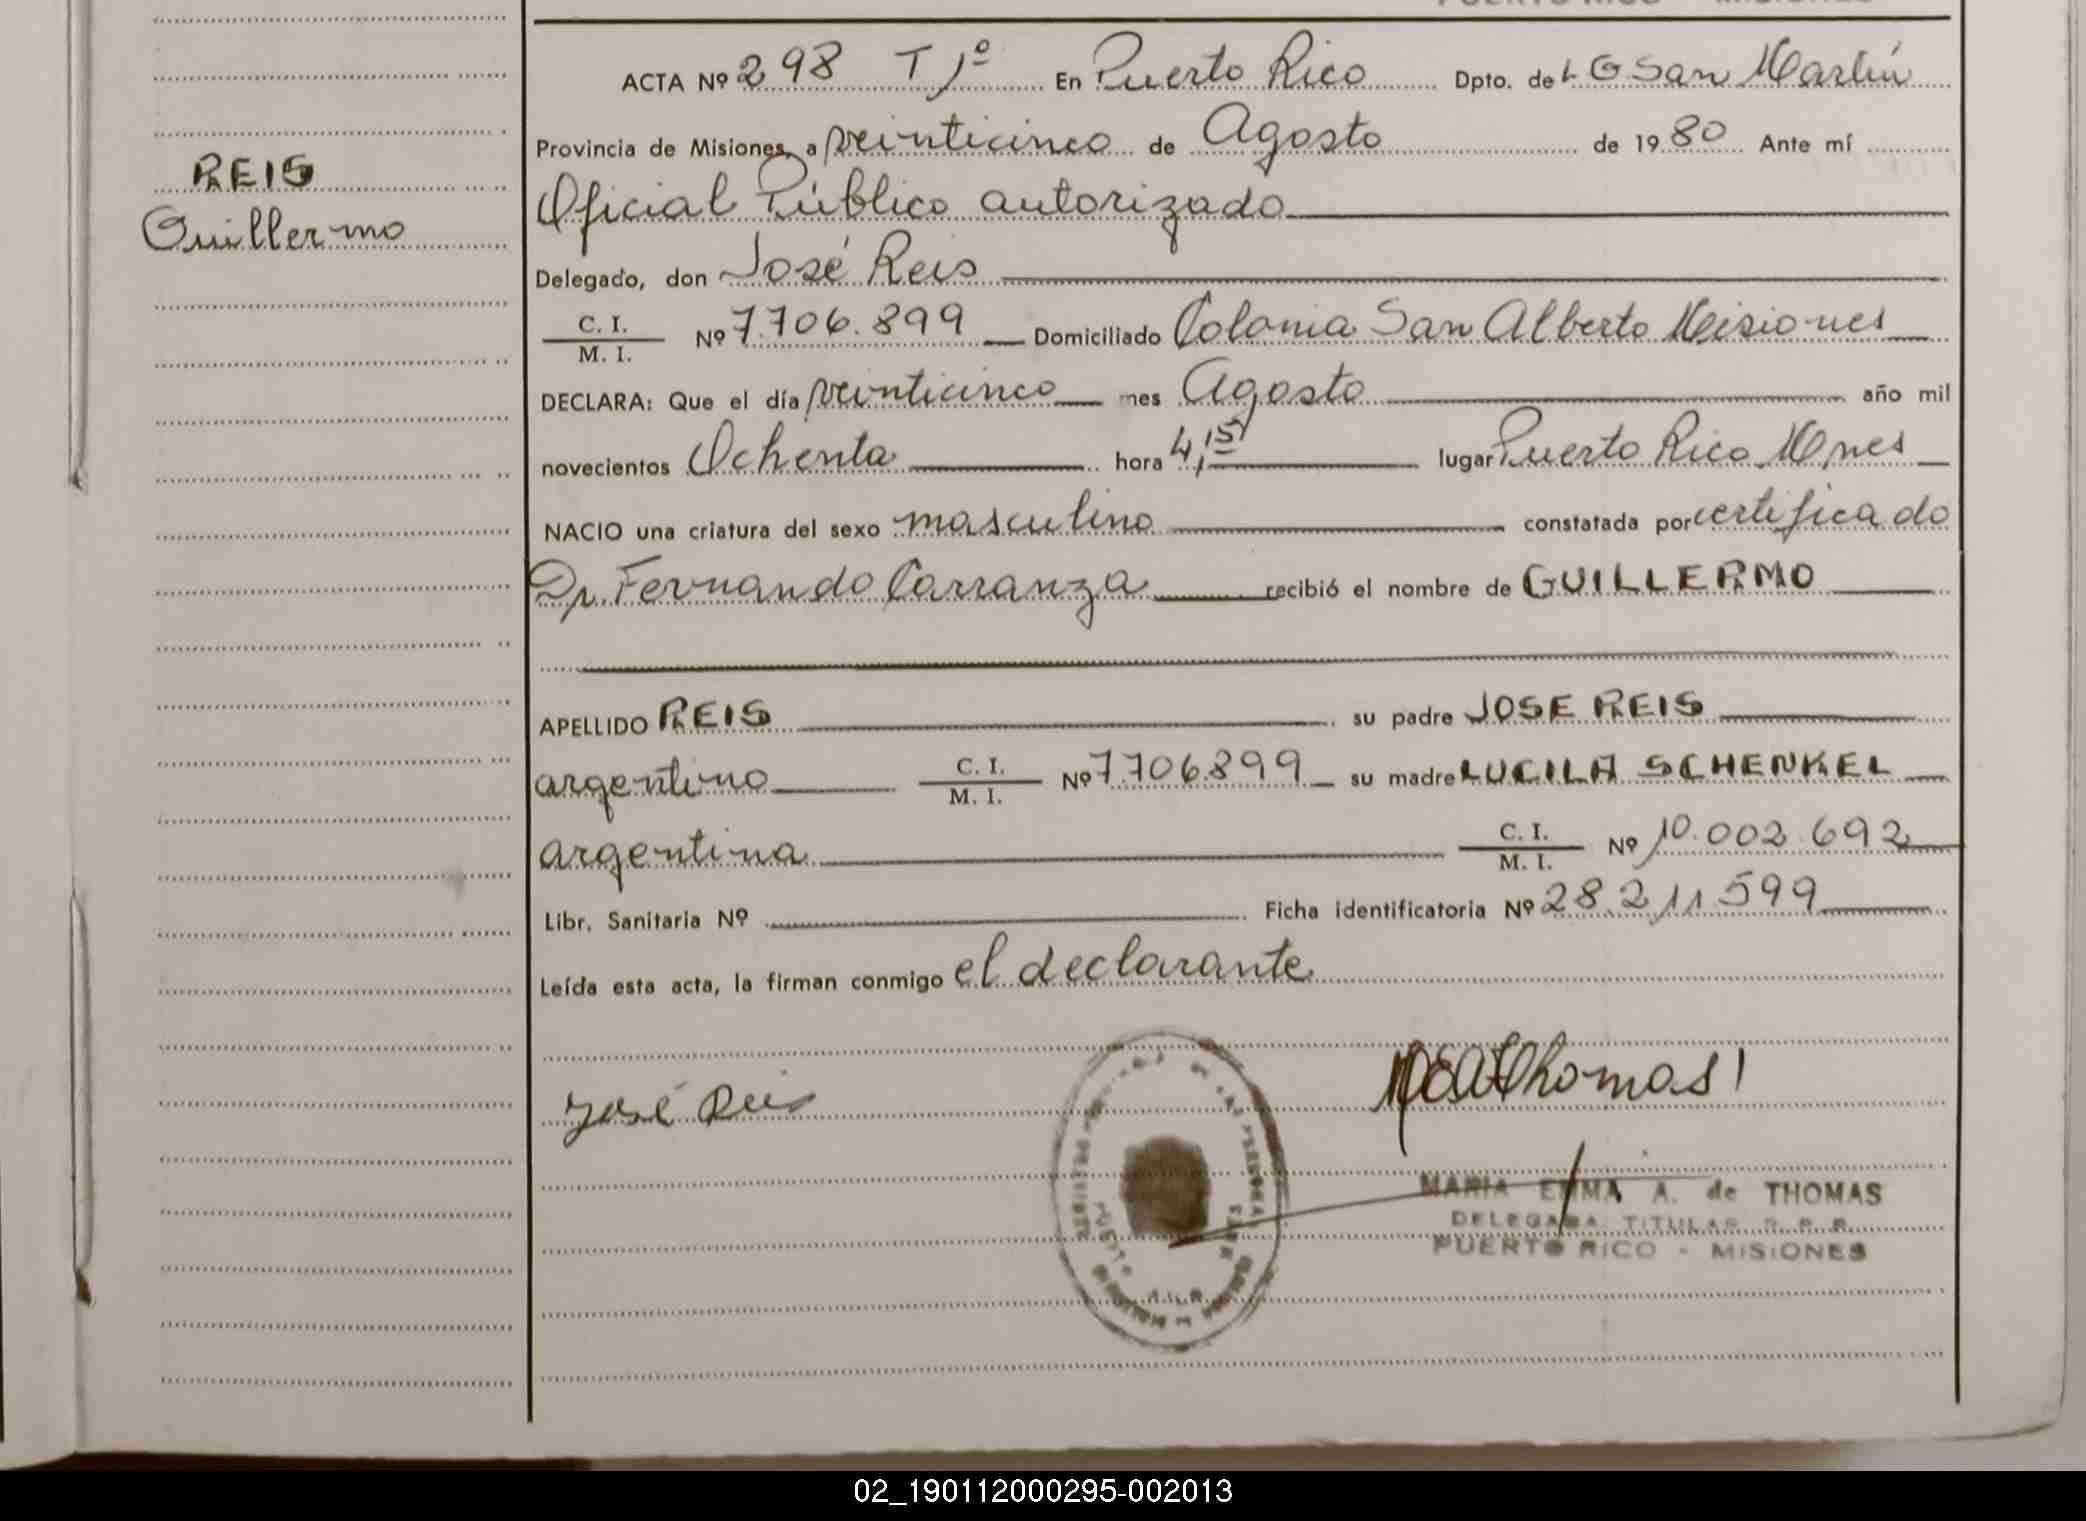 ACTA Nº 298 T 1º En Puerto Rico Dpto. de L G San Martín
Provincia de Misiones, a veinticinco de Agosto de 1980 Ante mí
REIS
Guillermo
Oficial Público autorizado
Delegado, don José Reis
C. I.
M. I.
Nº 7.706.899 Domiciliado Colonia San Alberto Misiones
DECLARA: Que el día veinticinco mes Agosto año mil
novecientos Ochenta hora 4,15 lugar Puerto Rico Mnes
NACIO una criatura del sexo masculino constatada por certificado
Dr. Fernando Carranza recibió el nombre de GUILLERMO
APELLIDO REIS su padre JOSE REIS
argentino C. I. M. I. Nº 7.706.899 su madre LUCILA SCHENKEL
argentina C. I. M. I. Nº 10.002.692
Libr. Sanitaria Nº Ficha identificatoria Nº 28.211.599
Leída esta acta, la firman conmigo el declarante
José Reis
Thomas
MARIA EMMA A. de THOMAS
DELEGADA TITULAR R. P. P.
PUERTO RICO - MISIONES
02_190112000295-002013